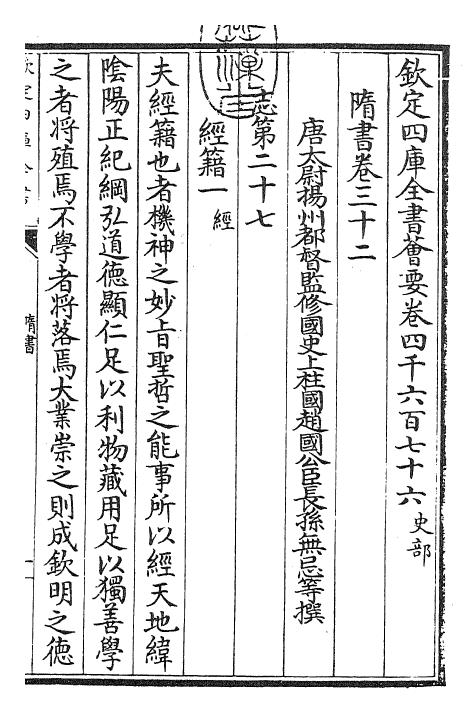 欽定四庫全書薈要卷四千六百七十六 史部
隋書卷三十二
唐太尉揚州都督監修國史上柱國趙國公臣長孫無忌等撰
志第二十七
經籍一 經
夫經籍也者機神之妙旨聖哲之能事所以經天地緯
陰陽正紀綱弘道德顯仁足以利物藏用足以獨善學
之者將殖焉不學者將落焉大業崇之則成欽明之德
隋書